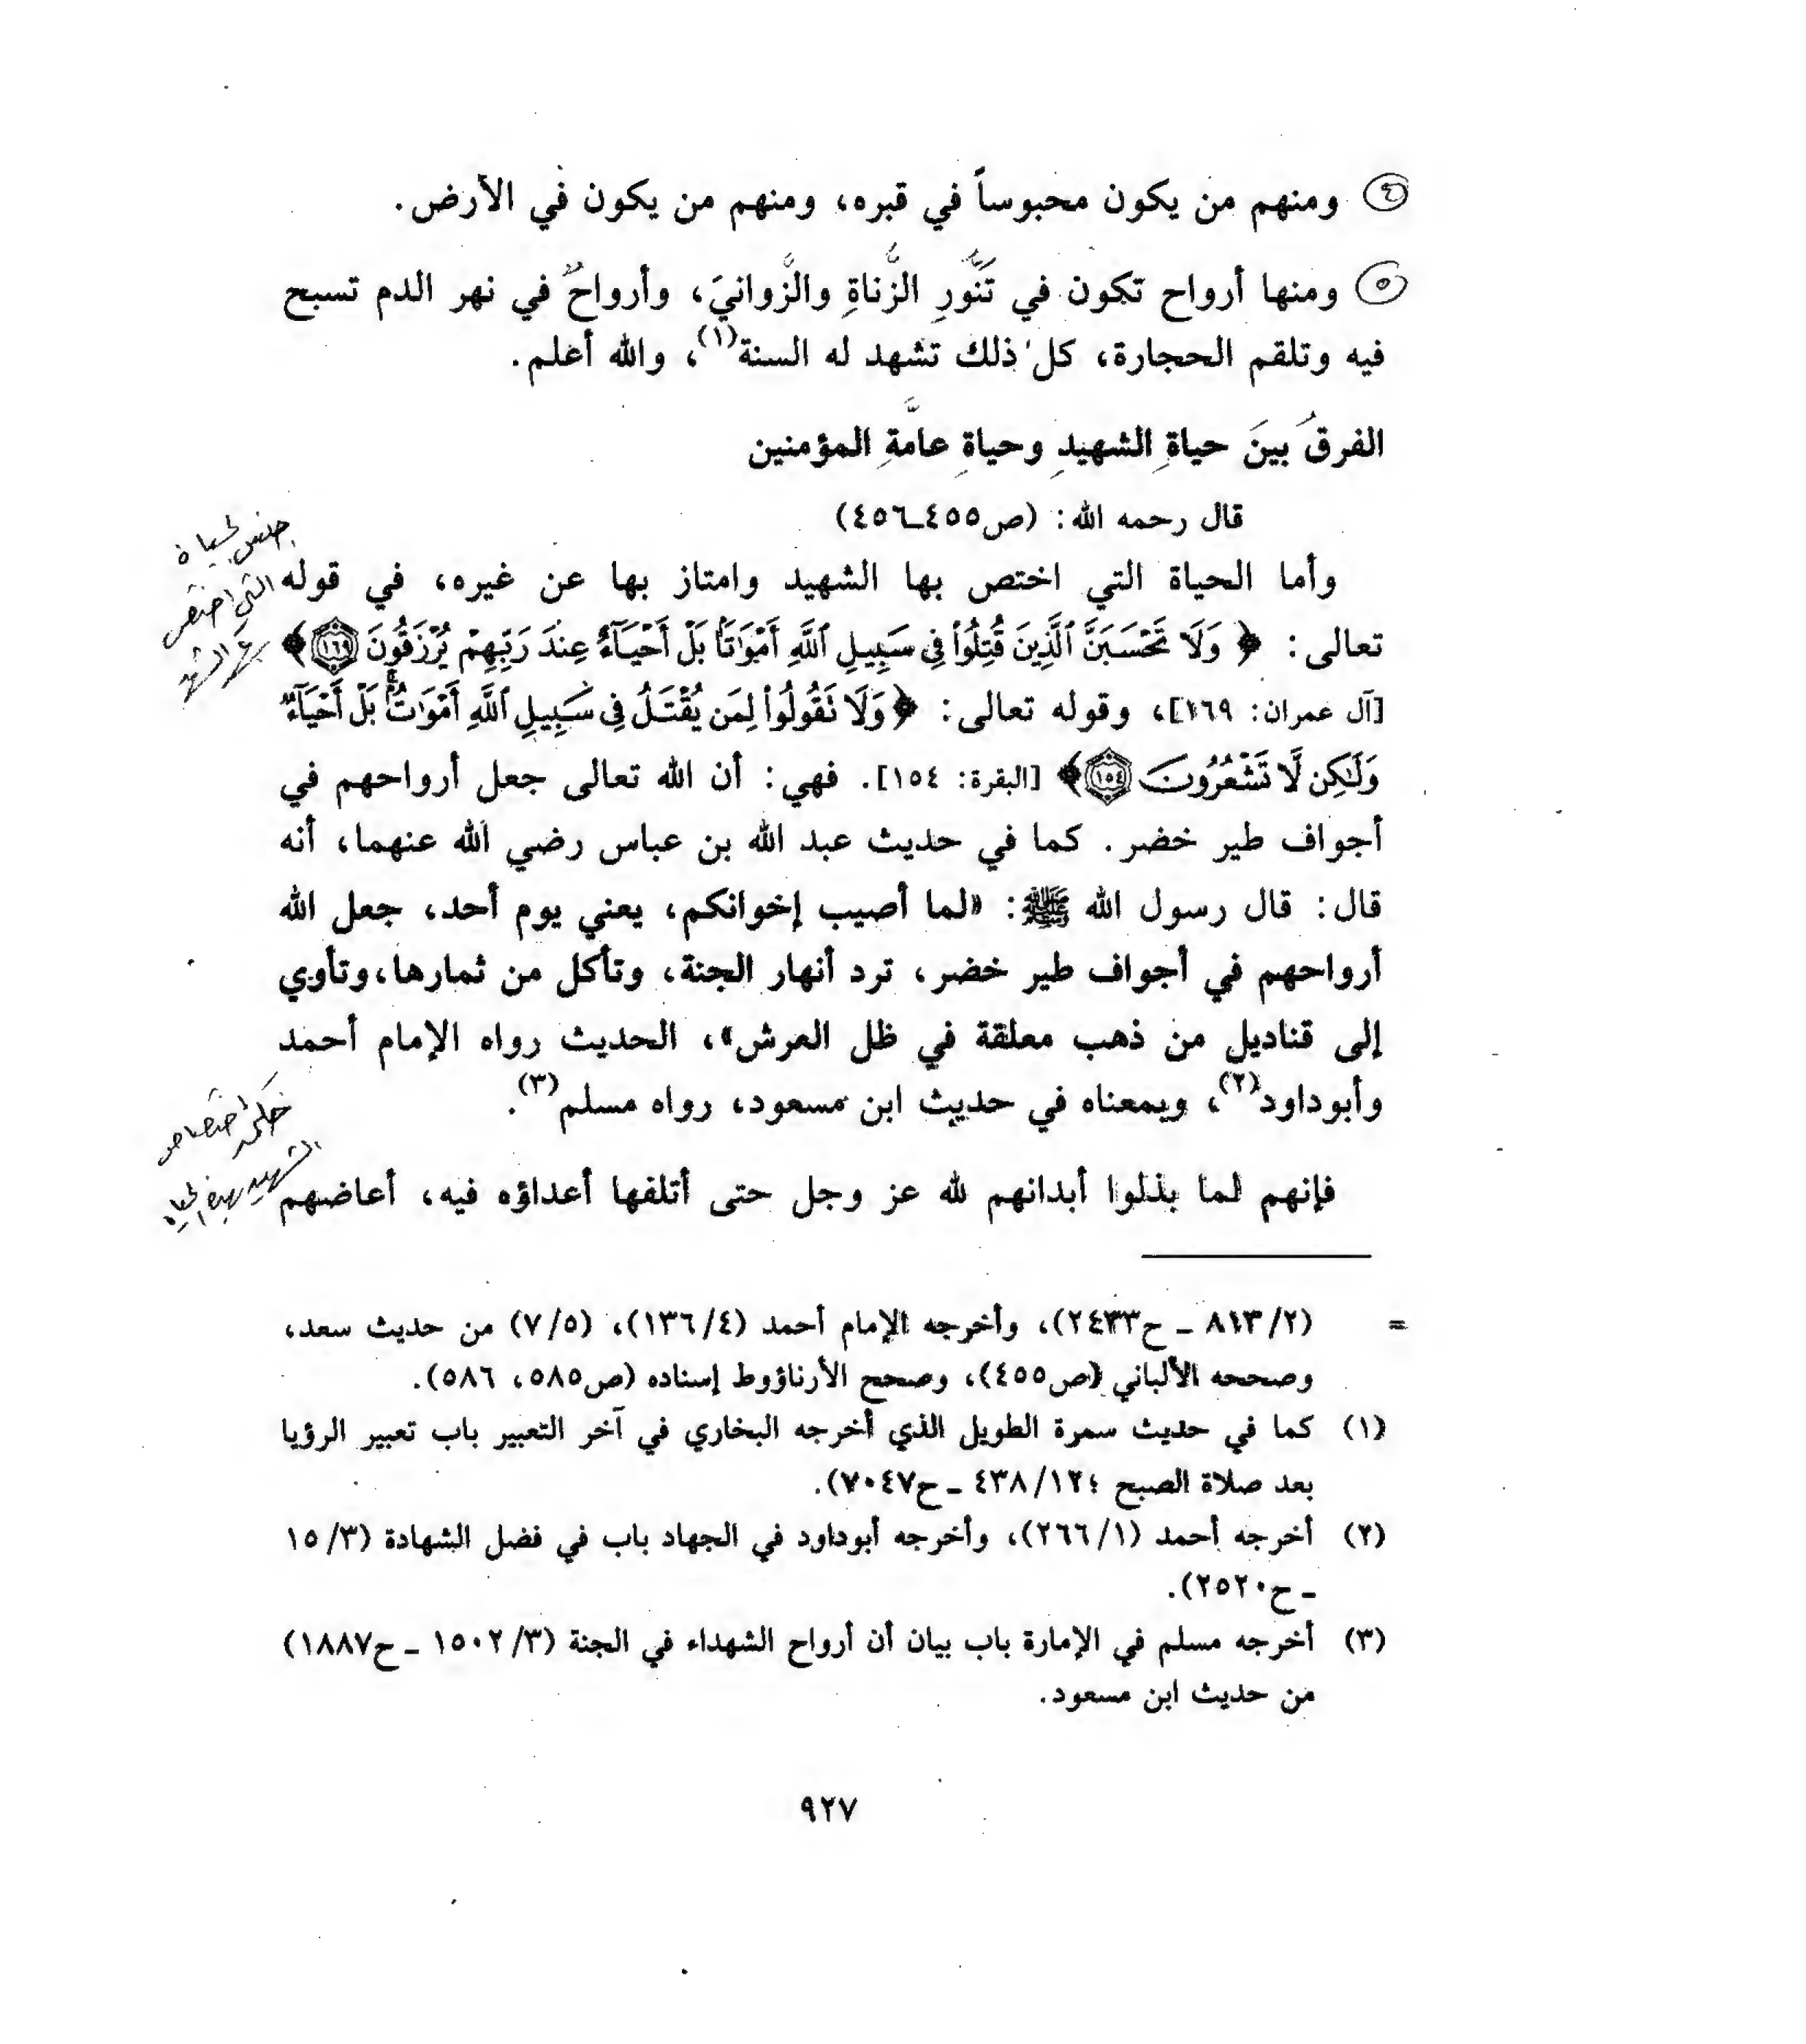 ٤ ومنهم من يكون محبوساً في قبره، ومنهم من يكون في الأرض.
٥ ومنها أرواح تكون في تَنُّورِ الزُّناةِ والزَّوانيَ، وأرواحٌ في نهر الدم تسبح
فيه وتلقم الحجارة، كل ذلك تشهد له السنة(١)، والله أعلم.
الفرقُ بينَ حياةِ الشهيدِ وحياةِ عامَّةِ المؤمنين
قال رحمه الله: (ص٤٥٥ـ٤٥٦)
جنس الحياة
وأما الحياة التي اختص بها الشهيد وامتاز بها عن غيره، في قوله
التي اختص
تعالى: ﴿ وَلَا تَحْسَبَنَّ ٱلَّذِينَ قُتِلُوا۟ فِى سَبِيلِ ٱللَّهِ أَمْوَٰتًۢا بَلْ أَحْيَآءٌ عِندَ رَبِّهِمْ يُرْزَقُونَ ١٦٩﴾
بها الشهيد
[آل عمران: ١٦٩]، وقوله تعالى: ﴿وَلَا تَقُولُوا۟ لِمَن يُقْتَلُ فِى سَبِيلِ ٱللَّهِ أَمْوَٰتٌۢ بَلْ أَحْيَآءٌ
وَلَٰكِن لَّا تَشْعُرُونَ ١٥٤﴾ [البقرة: ١٥٤]. فهي: أن الله تعالى جعل أرواحهم في
أجواف طير خضر. كما في حديث عبد الله بن عباس رضي الله عنهما، أنه
قال: قال رسول الله ﷺ: «لما أصيب إخوانكم، يعني يوم أحد، جعل الله
أرواحهم في أجواف طير خضر، ترد أنهار الجنة، وتأكل من ثمارها، وتأوي
إلى قناديل من ذهب معلقة في ظل العرش»، الحديث رواه الإمام أحمد
وأبوداود(٢)، وبمعناه في حديث ابن مسعود، رواه مسلم(٣).
اختصاص
الشهيد بهذه الحياة
فإنهم لما بذلوا أبدانهم لله عز وجل حتى أتلفها أعداؤه فيه، أعاضهم
= (٨١٣/٢ ـ ح٢٤٣٣)، وأخرجه الإمام أحمد (١٣٦/٤)، (٧/٥) من حديث سعد،
وصححه الألباني (ص٤٥٥)، وصحح الأرناؤوط إسناده (ص٥٨٥، ٥٨٦).
(١) كما في حديث سمرة الطويل الذي أخرجه البخاري في آخر التعبير باب تعبير الرؤيا
بعد صلاة الصبح ؛٤٣٨/١٢ ـ ح٧٠٤٧).
(٢) أخرجه أحمد (٢٦٦/١)، وأخرجه أبوداود في الجهاد باب في فضل الشهادة (١٥/٣
ـ ح٢٥٢٠).
(٣) أخرجه مسلم في الإمارة باب بيان أن أرواح الشهداء في الجنة (١٥٠٢/٣ ـ ح١٨٨٧)
من حديث ابن مسعود.
٩٢٧